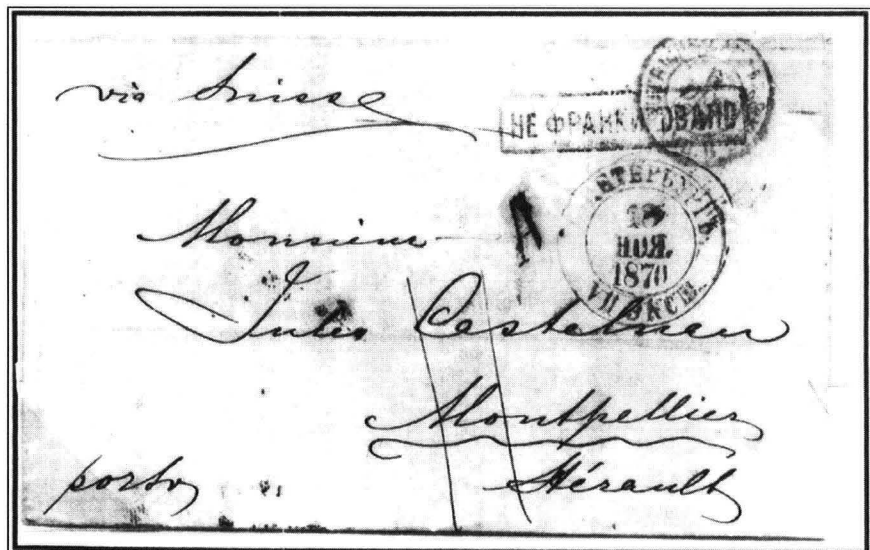 via Suisse
НЕ ФРАНКИРОВАНО
Monsieur
ПЕТЕРБУРГЪ
НОЯ.
1870
VII ЭКСП.
Jules Castelnau
Montpellier
Hérault
porto